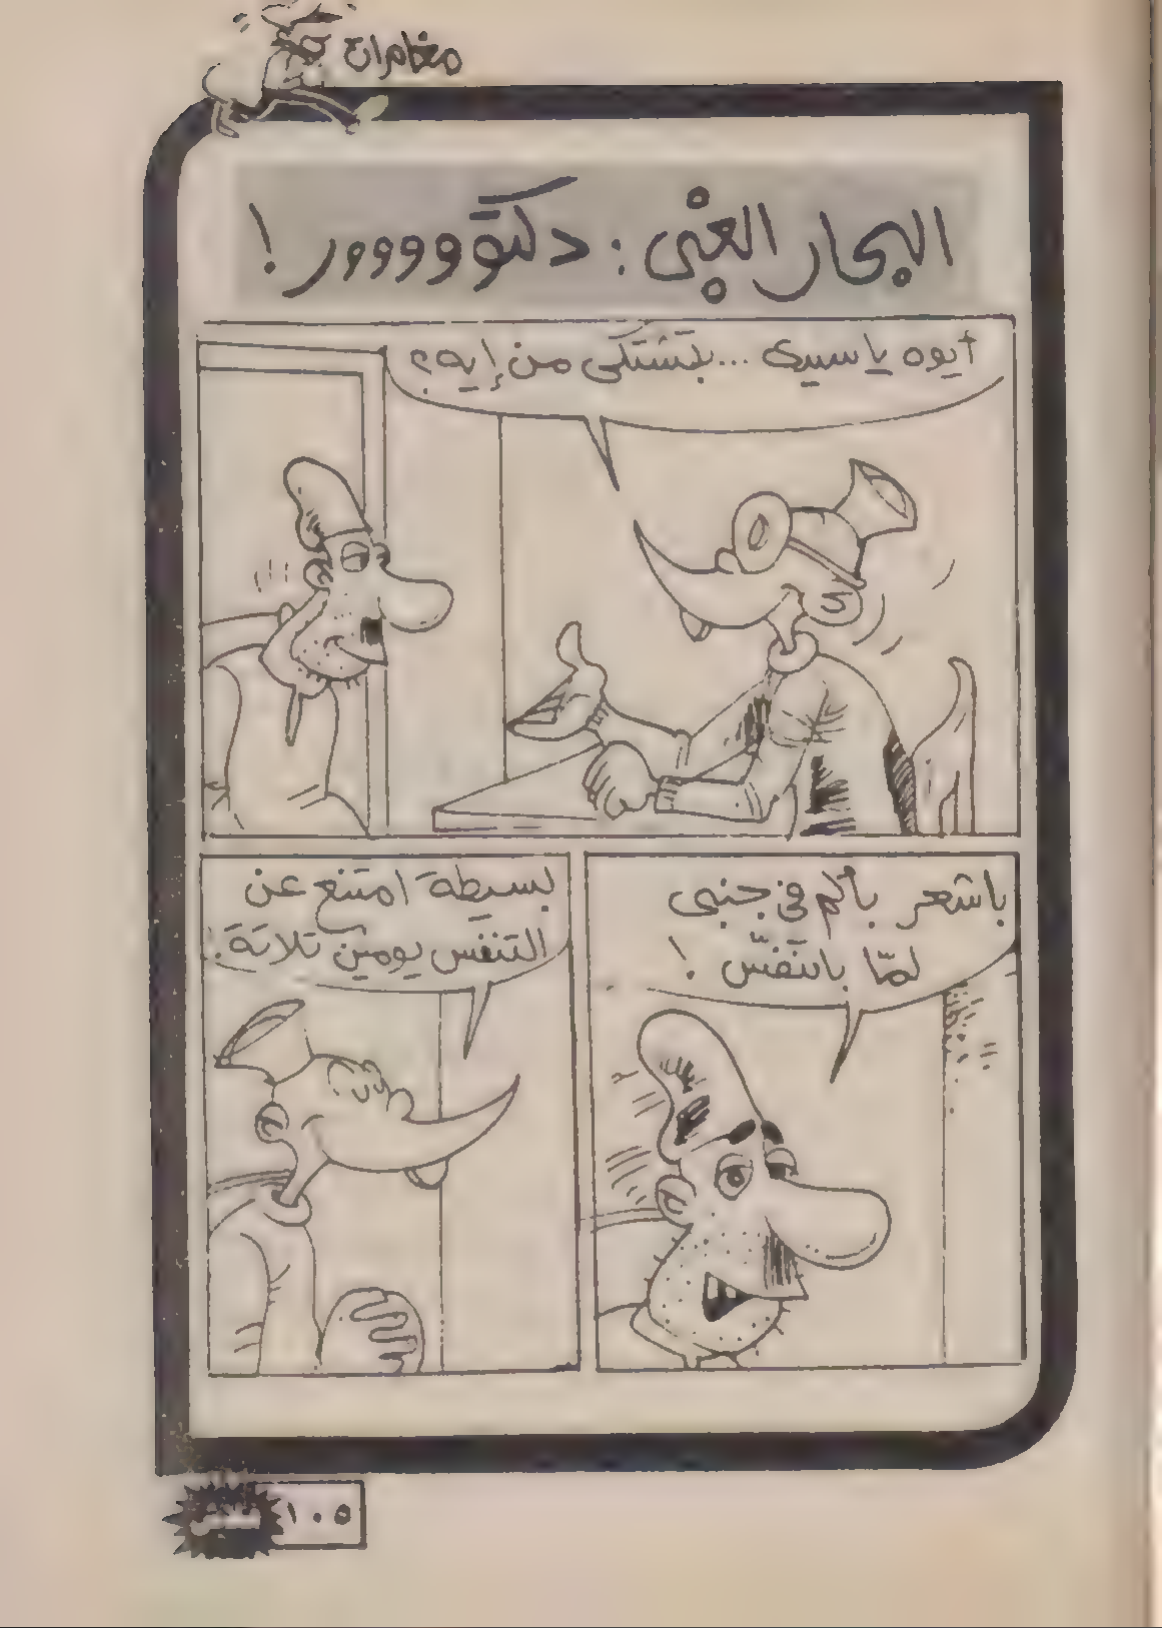 مغامرات
البحار الغبى : دكتوووور !
أيوه يا سيدى ... بتشتكى من إيه ؟
باشعر بألم فى جنبى
لمّا باتنفّس !
بسيطة امتنع عن
التنفس يومين تلاتة !
١٠٥